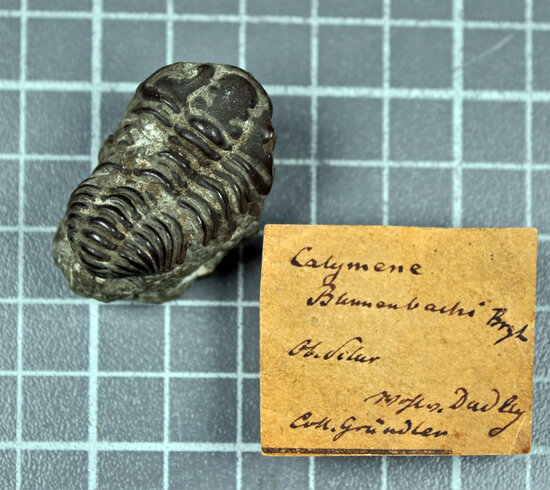 Calymene
Blumenbachi Brgt
Ob. Silur
Dudley
Coll. Gründler